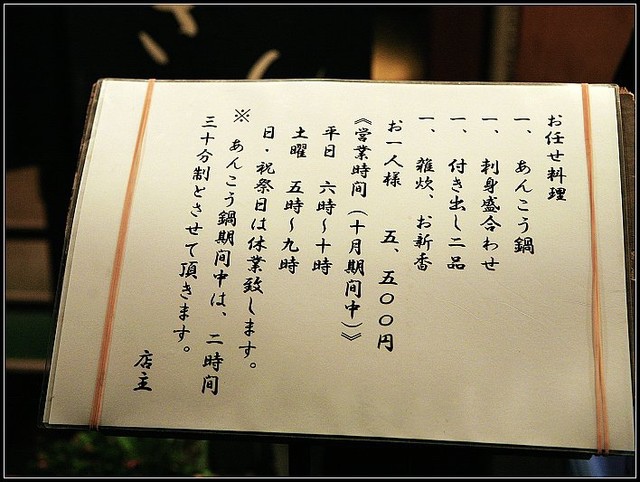 お任せ料理
一、あんこう鍋
一、刺身盛合わせ
一、付き出し二品
一、雑炊、お新香
お一人様　五、五〇〇円
《営業時間（十月期間中）》
平日　六時～十時
土曜　五時～九時
日・祝祭日は休業致します。
※　あんこう鍋期間中は、二時間
三十分制とさせて頂きます。
店主